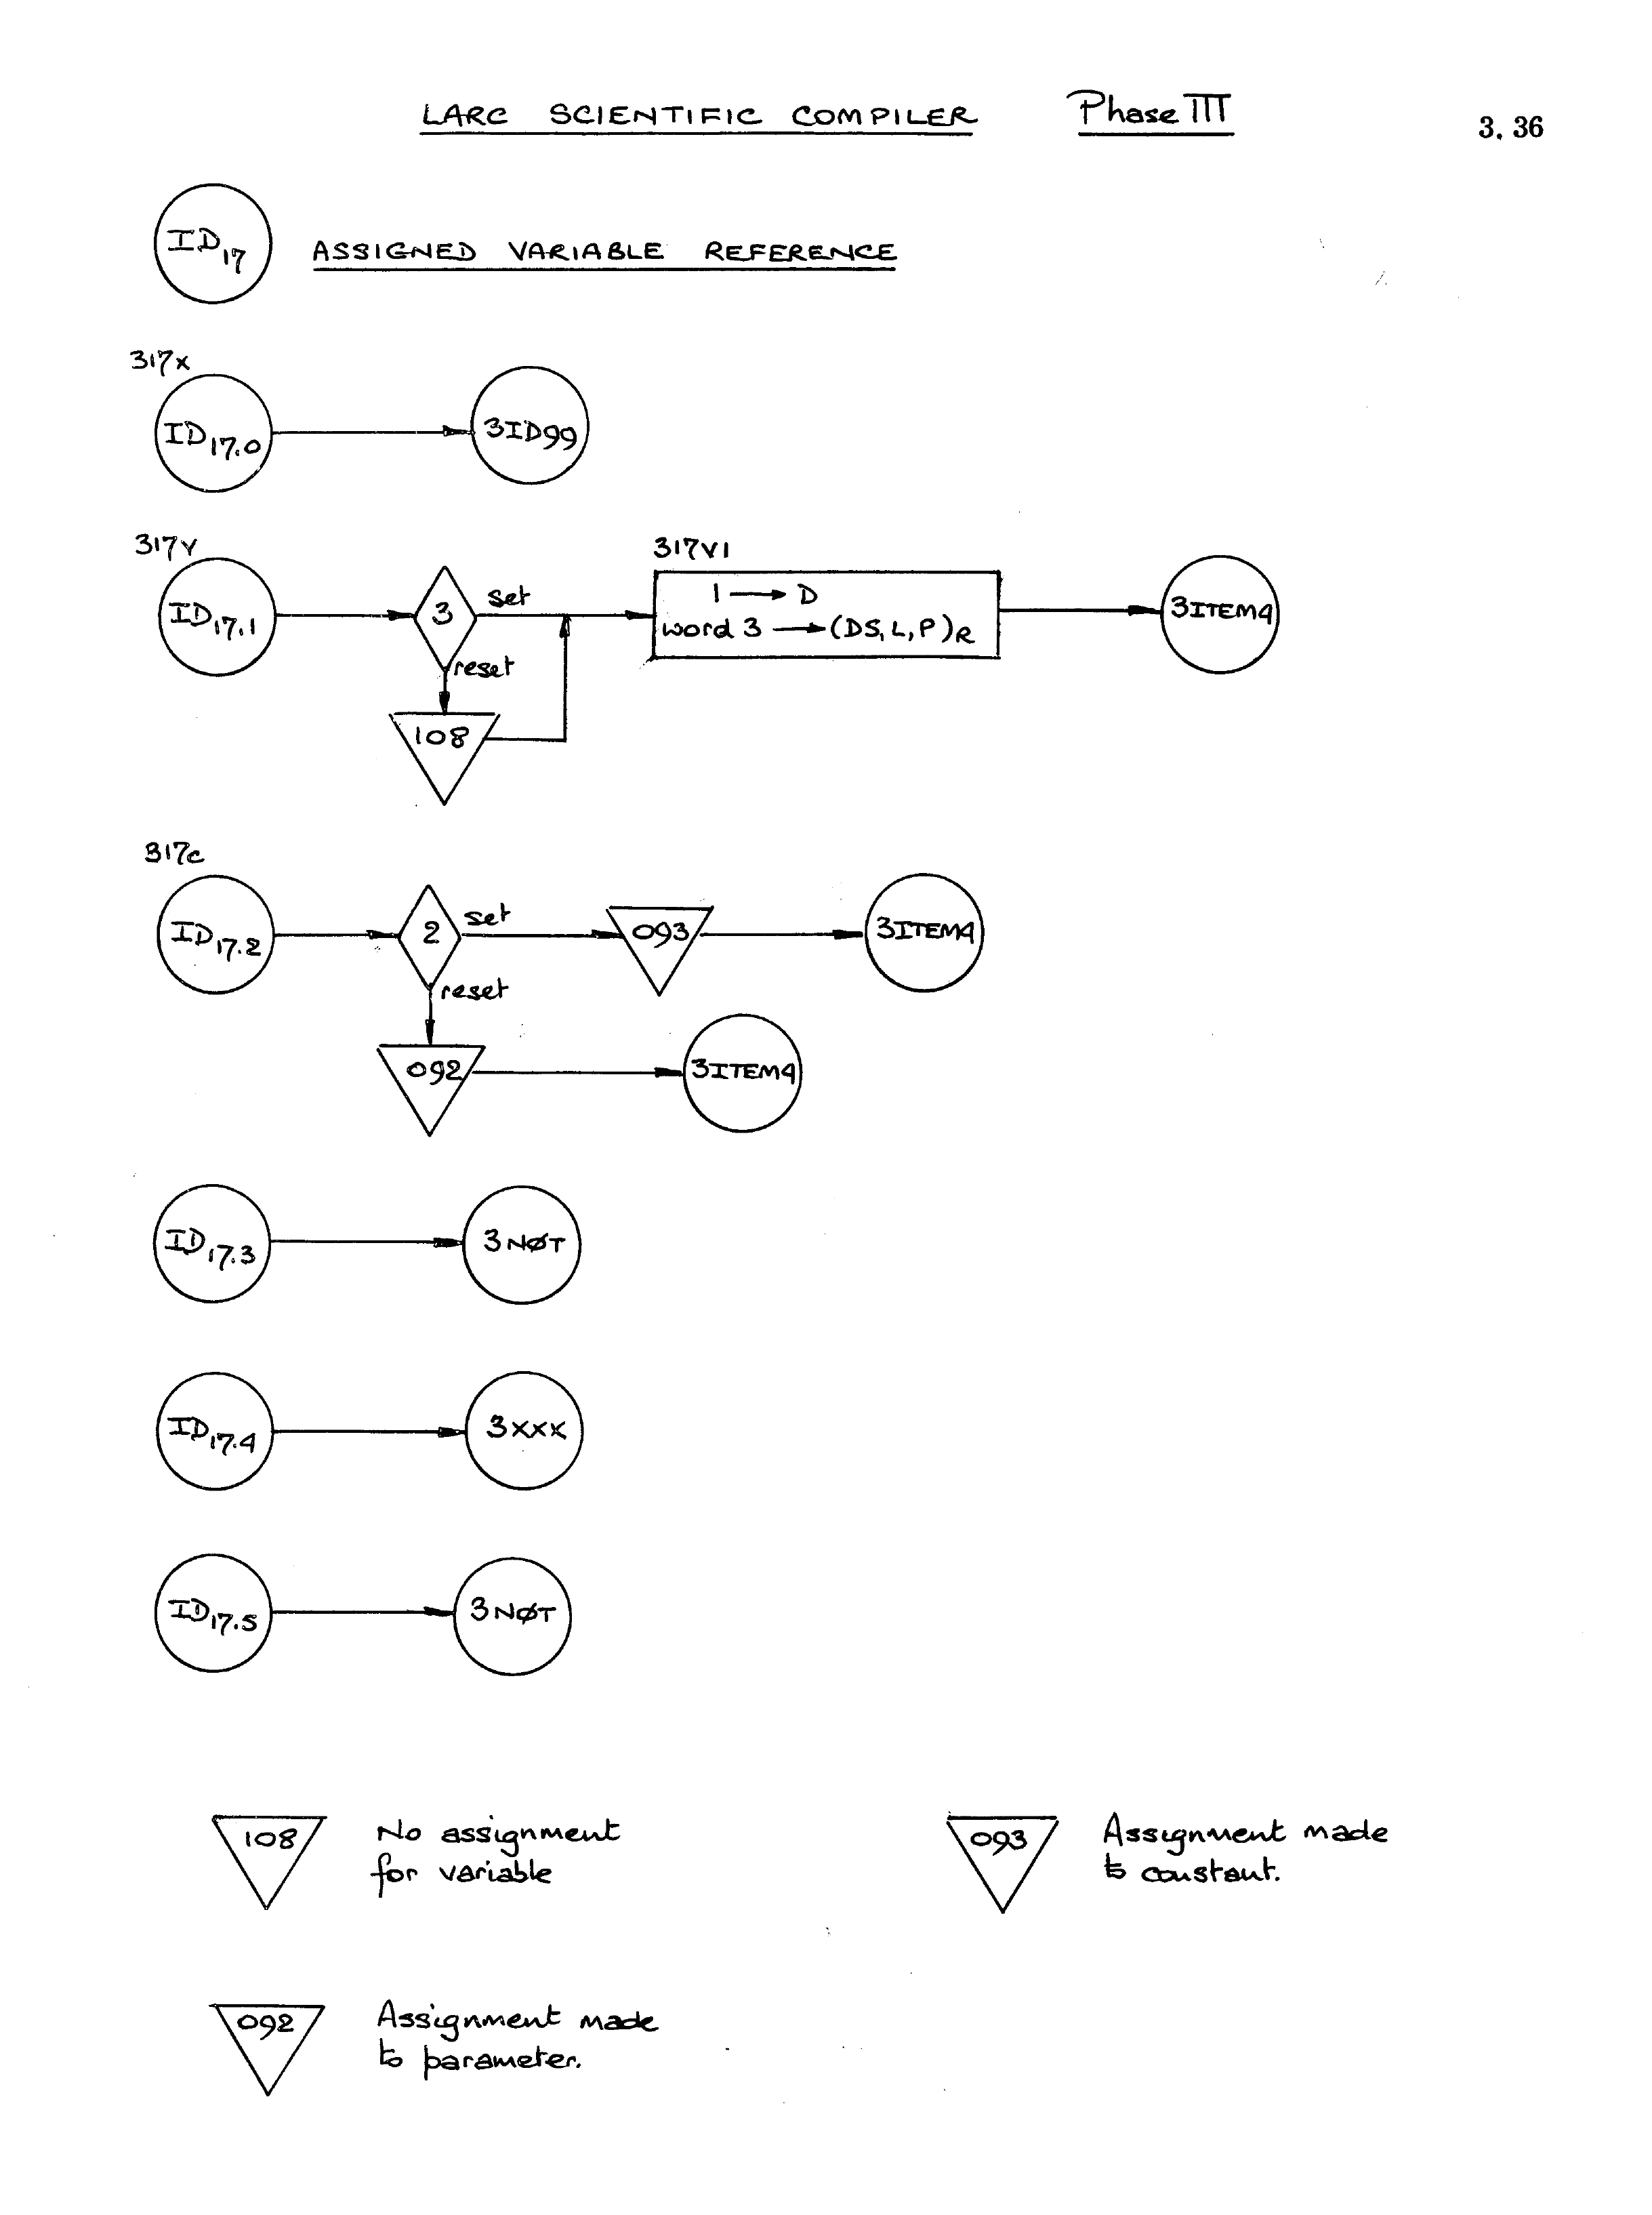 LARC SCIENTIFIC COMPILER Phase III
3.36
ID17
ASSIGNED VARIABLE REFERENCE
317X
ID17.0 3ID99
317V
ID17.1 3 set
reset
108
317V1
1 → D
word 3 → (DS, L, P)R
3ITEM4
317C
ID17.2 2 set 093 3ITEM4
reset
092 3ITEM4
ID17.3 3NØT
ID17.4 3XXX
ID17.5 3NØT
108 No assignment
for variable
093 Assignment made
to constant.
092 Assignment made
to parameter.